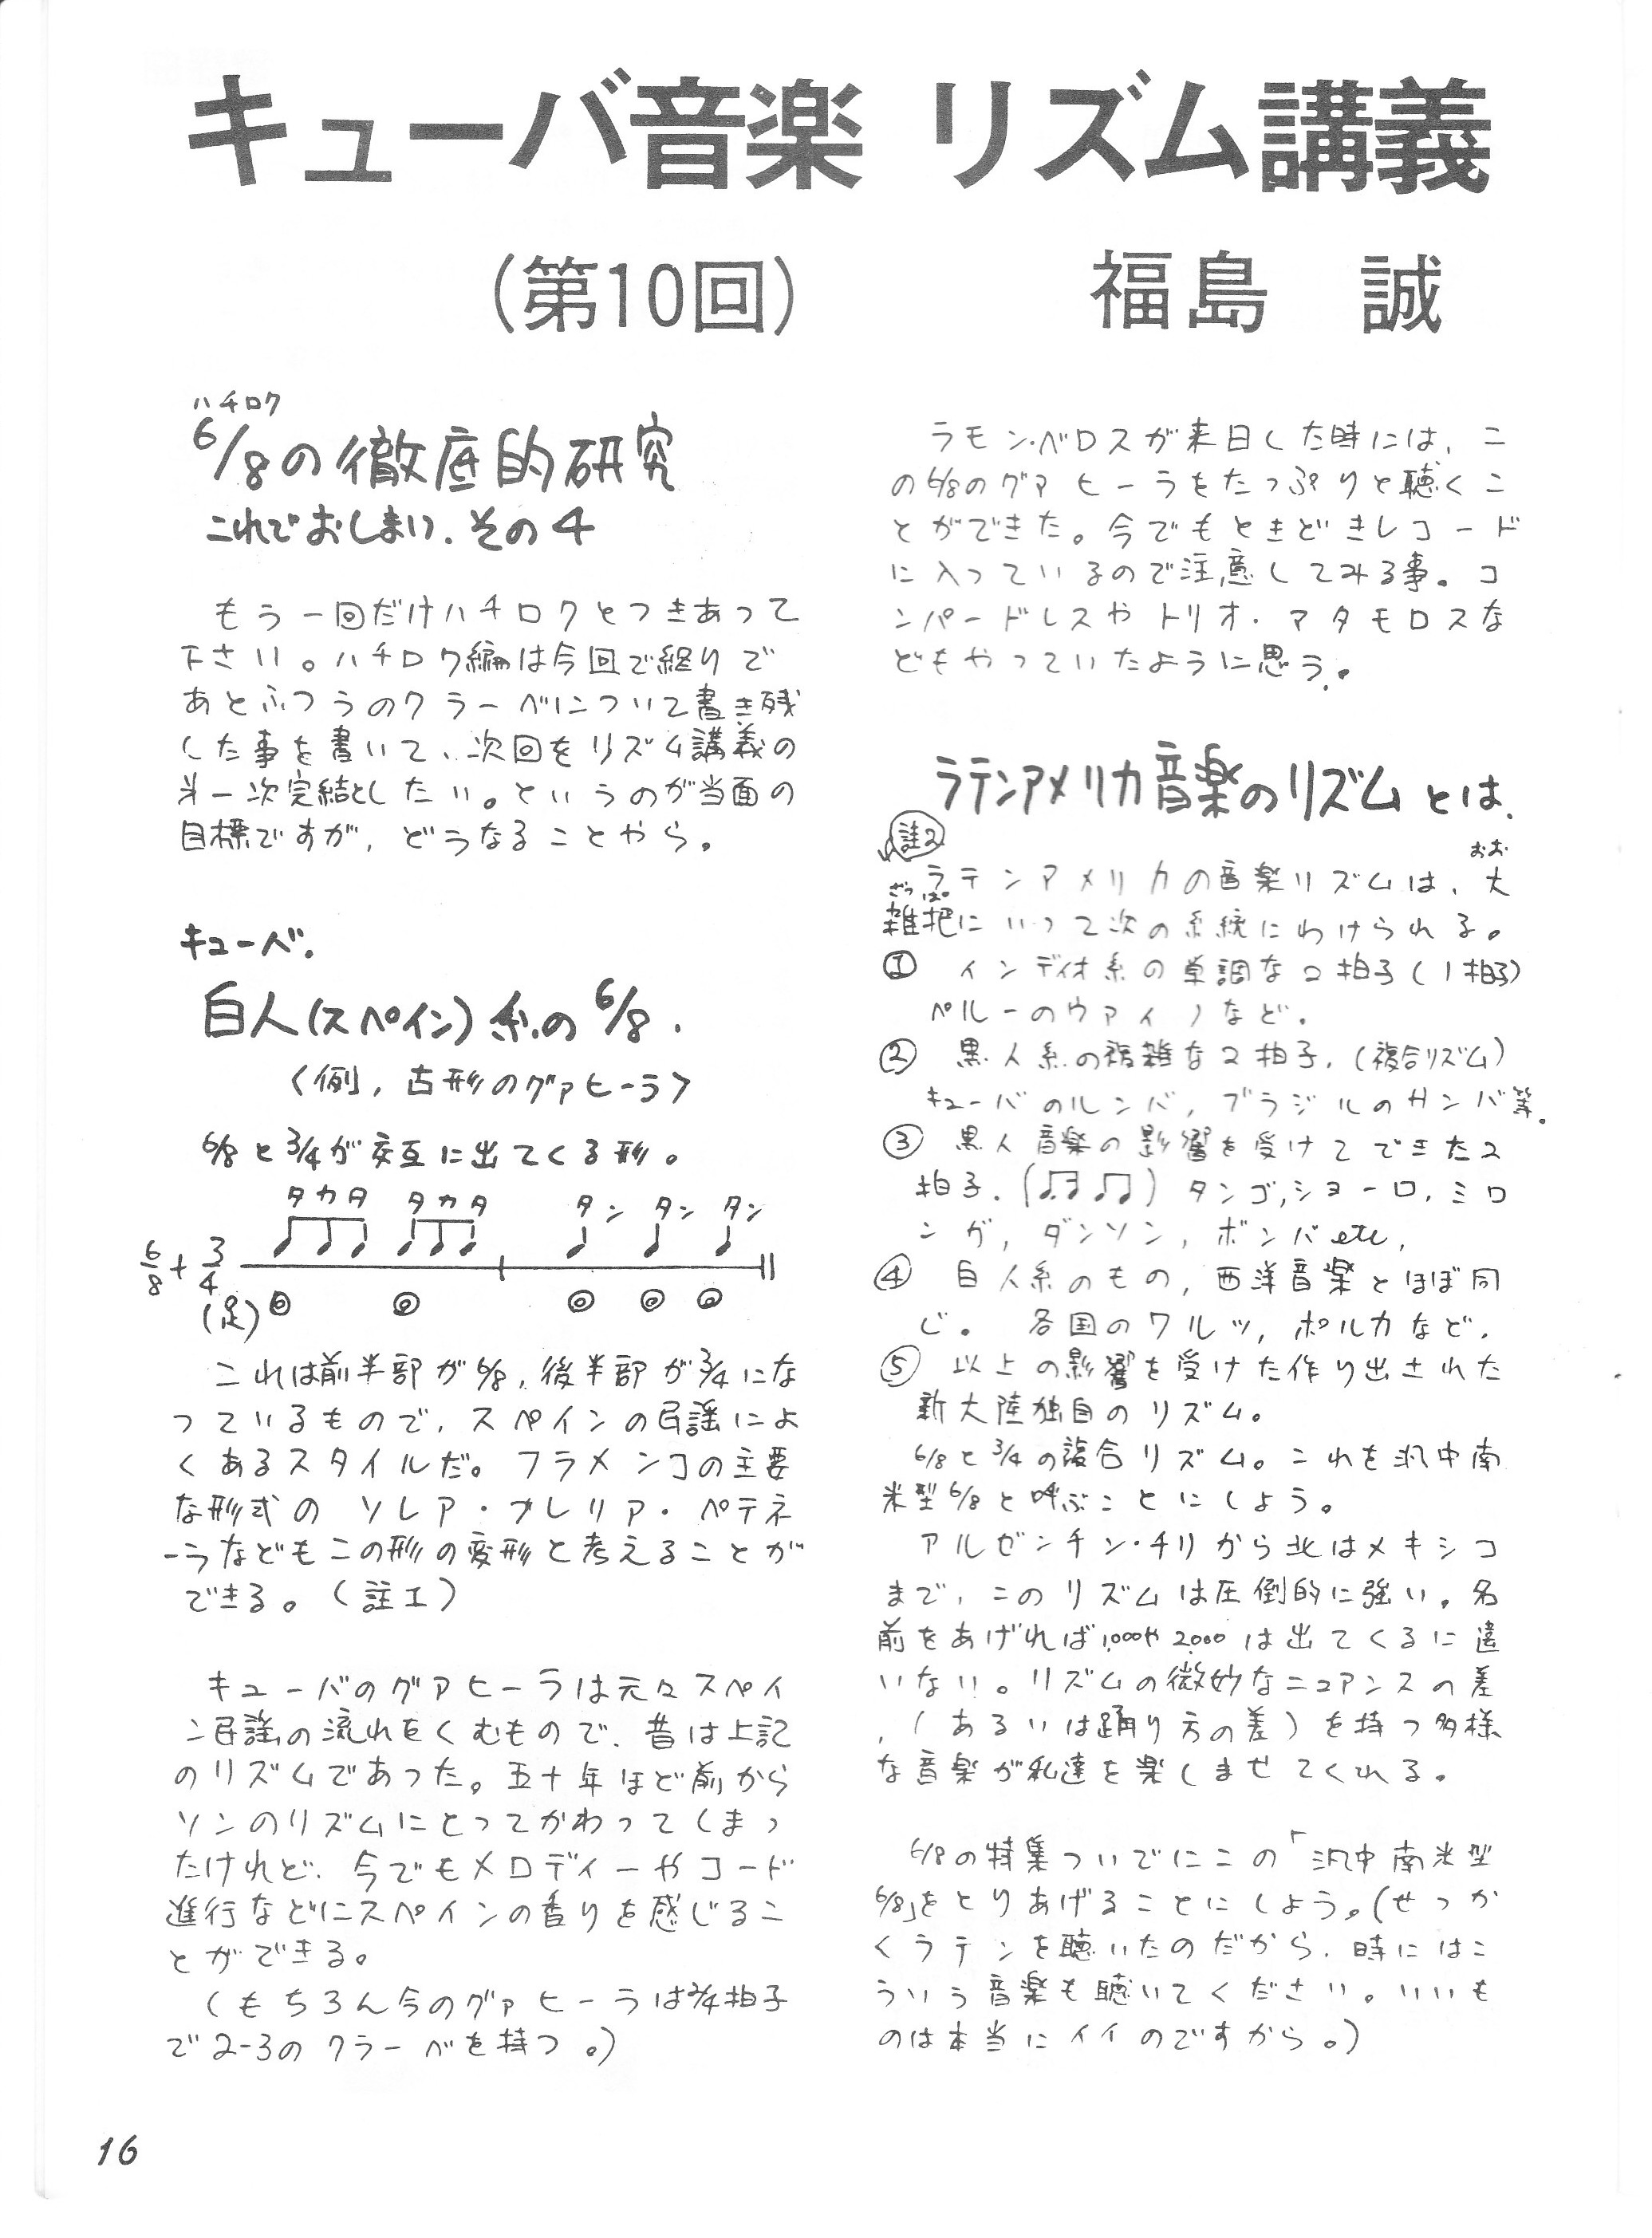 キューバ音楽 リズム講義
(第10回) 福島 誠
ハチロク
6/8の徹底的研究
これでおしまい.その4
もう一回だけハチロクとつきあって
下さい。ハチロク編は今回で終りで
あとふつうのクラーベについて書き残
した事を書いて、次回をリズム講義の
第一次完結としたい。というのが当面の
目標ですが、どうなることやら。
キューバ.
白人(スペイン)系の6/8.
〈例,古形のグァヒーラ〉
6/8と3/4が交互に出てくる形。
タカタ タカタ タン タン タン
6/8+3/4
(足)◎ ◎ ◎ ◎ ◎
これは前半部が6/8,後半部が3/4にな
っているもので、スペインの民謡によ
くあるスタイルだ。フラメンコの主要
な形式の ソレア・ブレリア・ペテネ
ーラなどもこの形の変形と考えることが
できる。(註1)
キューバのグァヒーラは元々スペイ
ン民謡の流れをくむもので、昔は上記
のリズムであった。五十年ほど前から
ソンのリズムにとってかわってしまっ
たけれど、今でもメロディーやコード
進行などにスペインの香りを感じるこ
とができる。
(もちろん今のグァヒーラは2/4拍子
で2-3のクラーベを持つ。)
16
ラモン・ベロスが来日した時には、こ
の6/8のグァヒーラをたっぷりと聴くこ
とができた。今でもときどきレコード
に入っているので注意してみる事。コ
ンパードレスやトリオ・マタモロスな
どもやっていたように思う。
ラテンアメリカ音楽のリズムとは.
註2
おお
ラテンアメリカの音楽リズムは、大
ざっぱ
雑把にいって次の系統にわけられる。
① インディオ系の単調な2拍子(1拍子)
ペルーのウァイノなど.
② 黒人系の複雑な2拍子.(複合リズム)
キューバのルンバ,ブラジルのサンバ等.
③ 黒人音楽の影響を受けてできた2
拍子.(♬♪ ♫) タンゴ,ショーロ,ミロ
ンガ,ダンソン,ボンバetc,
④ 白人系のもの,西洋音楽とほぼ同
じ。 各国のワルツ,ポルカなど.
⑤ 以上の影響を受けた作り出された
新大陸独自のリズム。
6/8と3/4の複合リズム。これを汎中南
米型6/8と呼ぶことにしよう。
アルゼンチン・チリから北はメキシコ
まで、このリズムは圧倒的に強い。名
前をあげれば1,000や2,000は出てくるに違
いない。リズムの微妙なニュアンスの差
,(あるいは踊り方の差)を持つ多様
な音楽が私達を楽しませてくれる。
6/8の特集ついでにこの「汎中南米型
6/8」をとりあげることにしよう。(せっか
くラテンを聴いたのだから、時にはこ
ういう音楽も聴いてください。いいも
のは本当にイイのですから。)